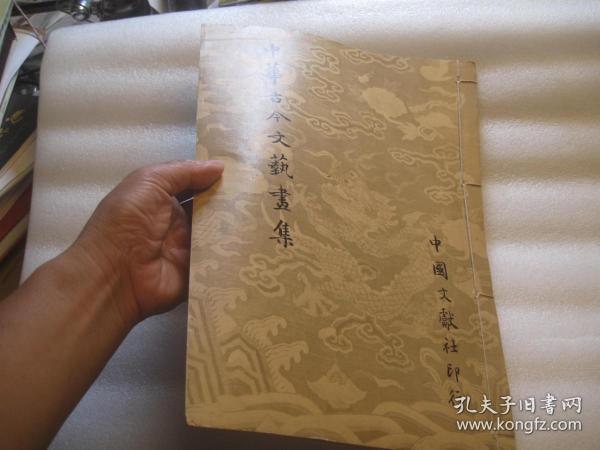 中華古今文藝畫集
中國文獻社印行
孔夫子旧书网
www.kongfz.com